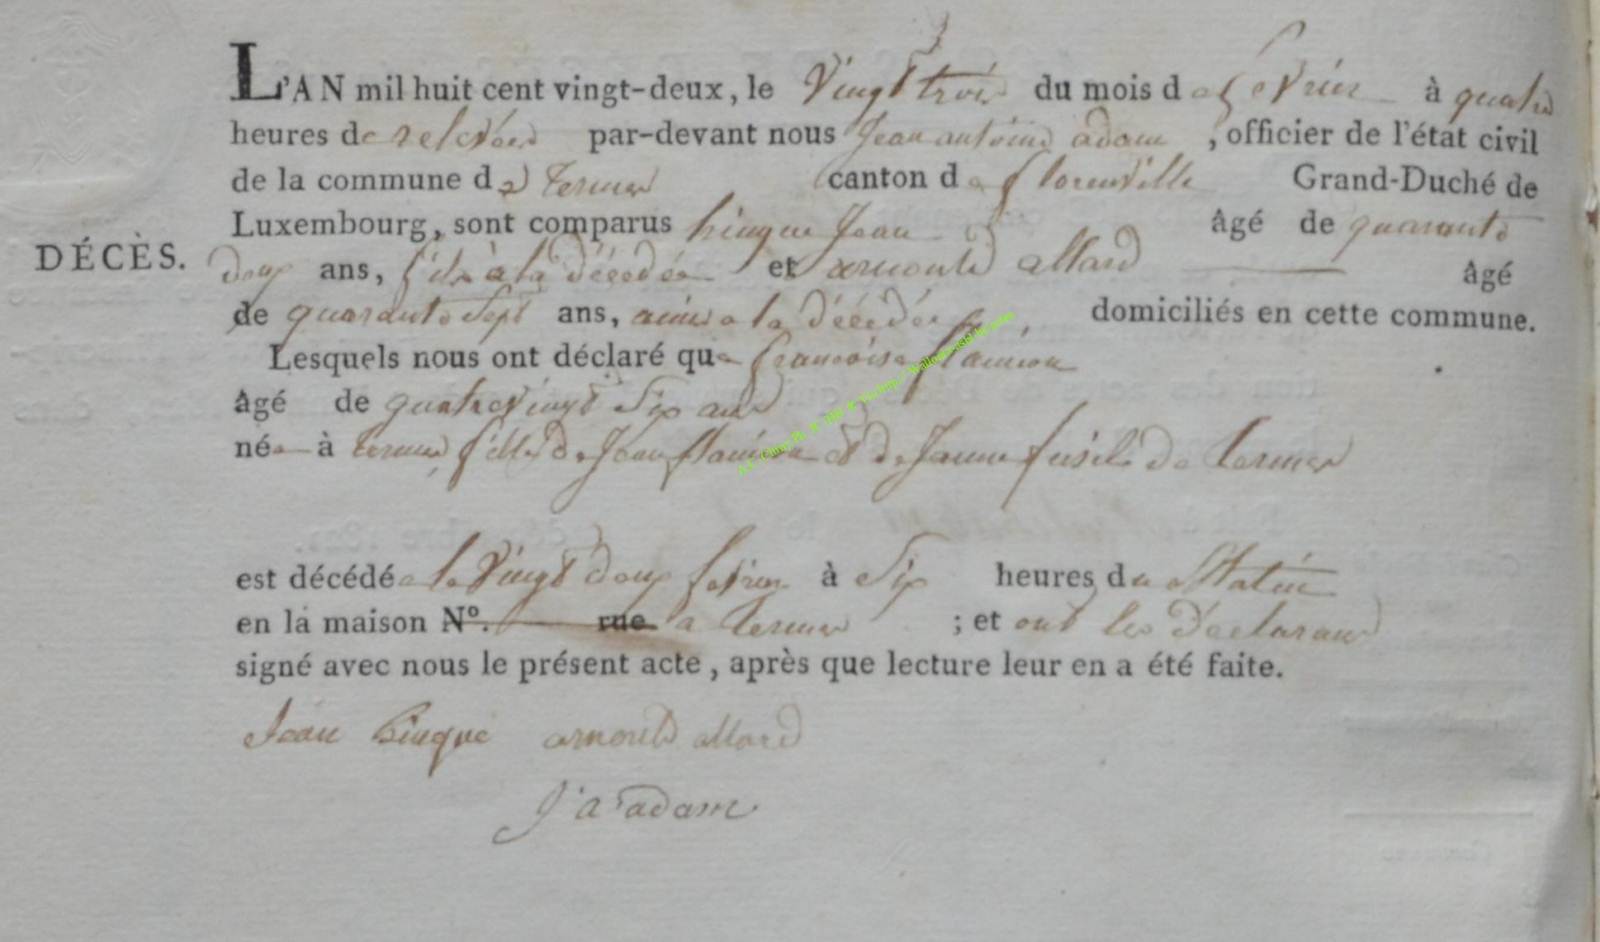 L'AN mil huit cent vingt-deux, le Vingt trois du mois de fevrier à quatre
heures de relevée par-devant nous Jean antoine adam , officier de l'état civil
de la commune de termes canton de florenville Grand-Duché de
Luxembourg, sont comparus hinque Jean âgé de quarante
DÉCÈS.
deux ans, fils à la décédée et arnould allard âgé
de quarante Sept ans, amis a la décédée domiciliés en cette commune.
Lesquels nous ont déclaré que francoise flamion
âgé de quatre Vingt Six ans
née à termes fille de Jean flamion et de Jeanne fusil de termes
est décédée le Vingt deux fevrier à Six heures du Matin
en la maison N°. rue a termes ; et ont les déclarans
signé avec nous le présent acte, après que lecture leur en a été faite.
Jean hinque arnould allard
J a adam